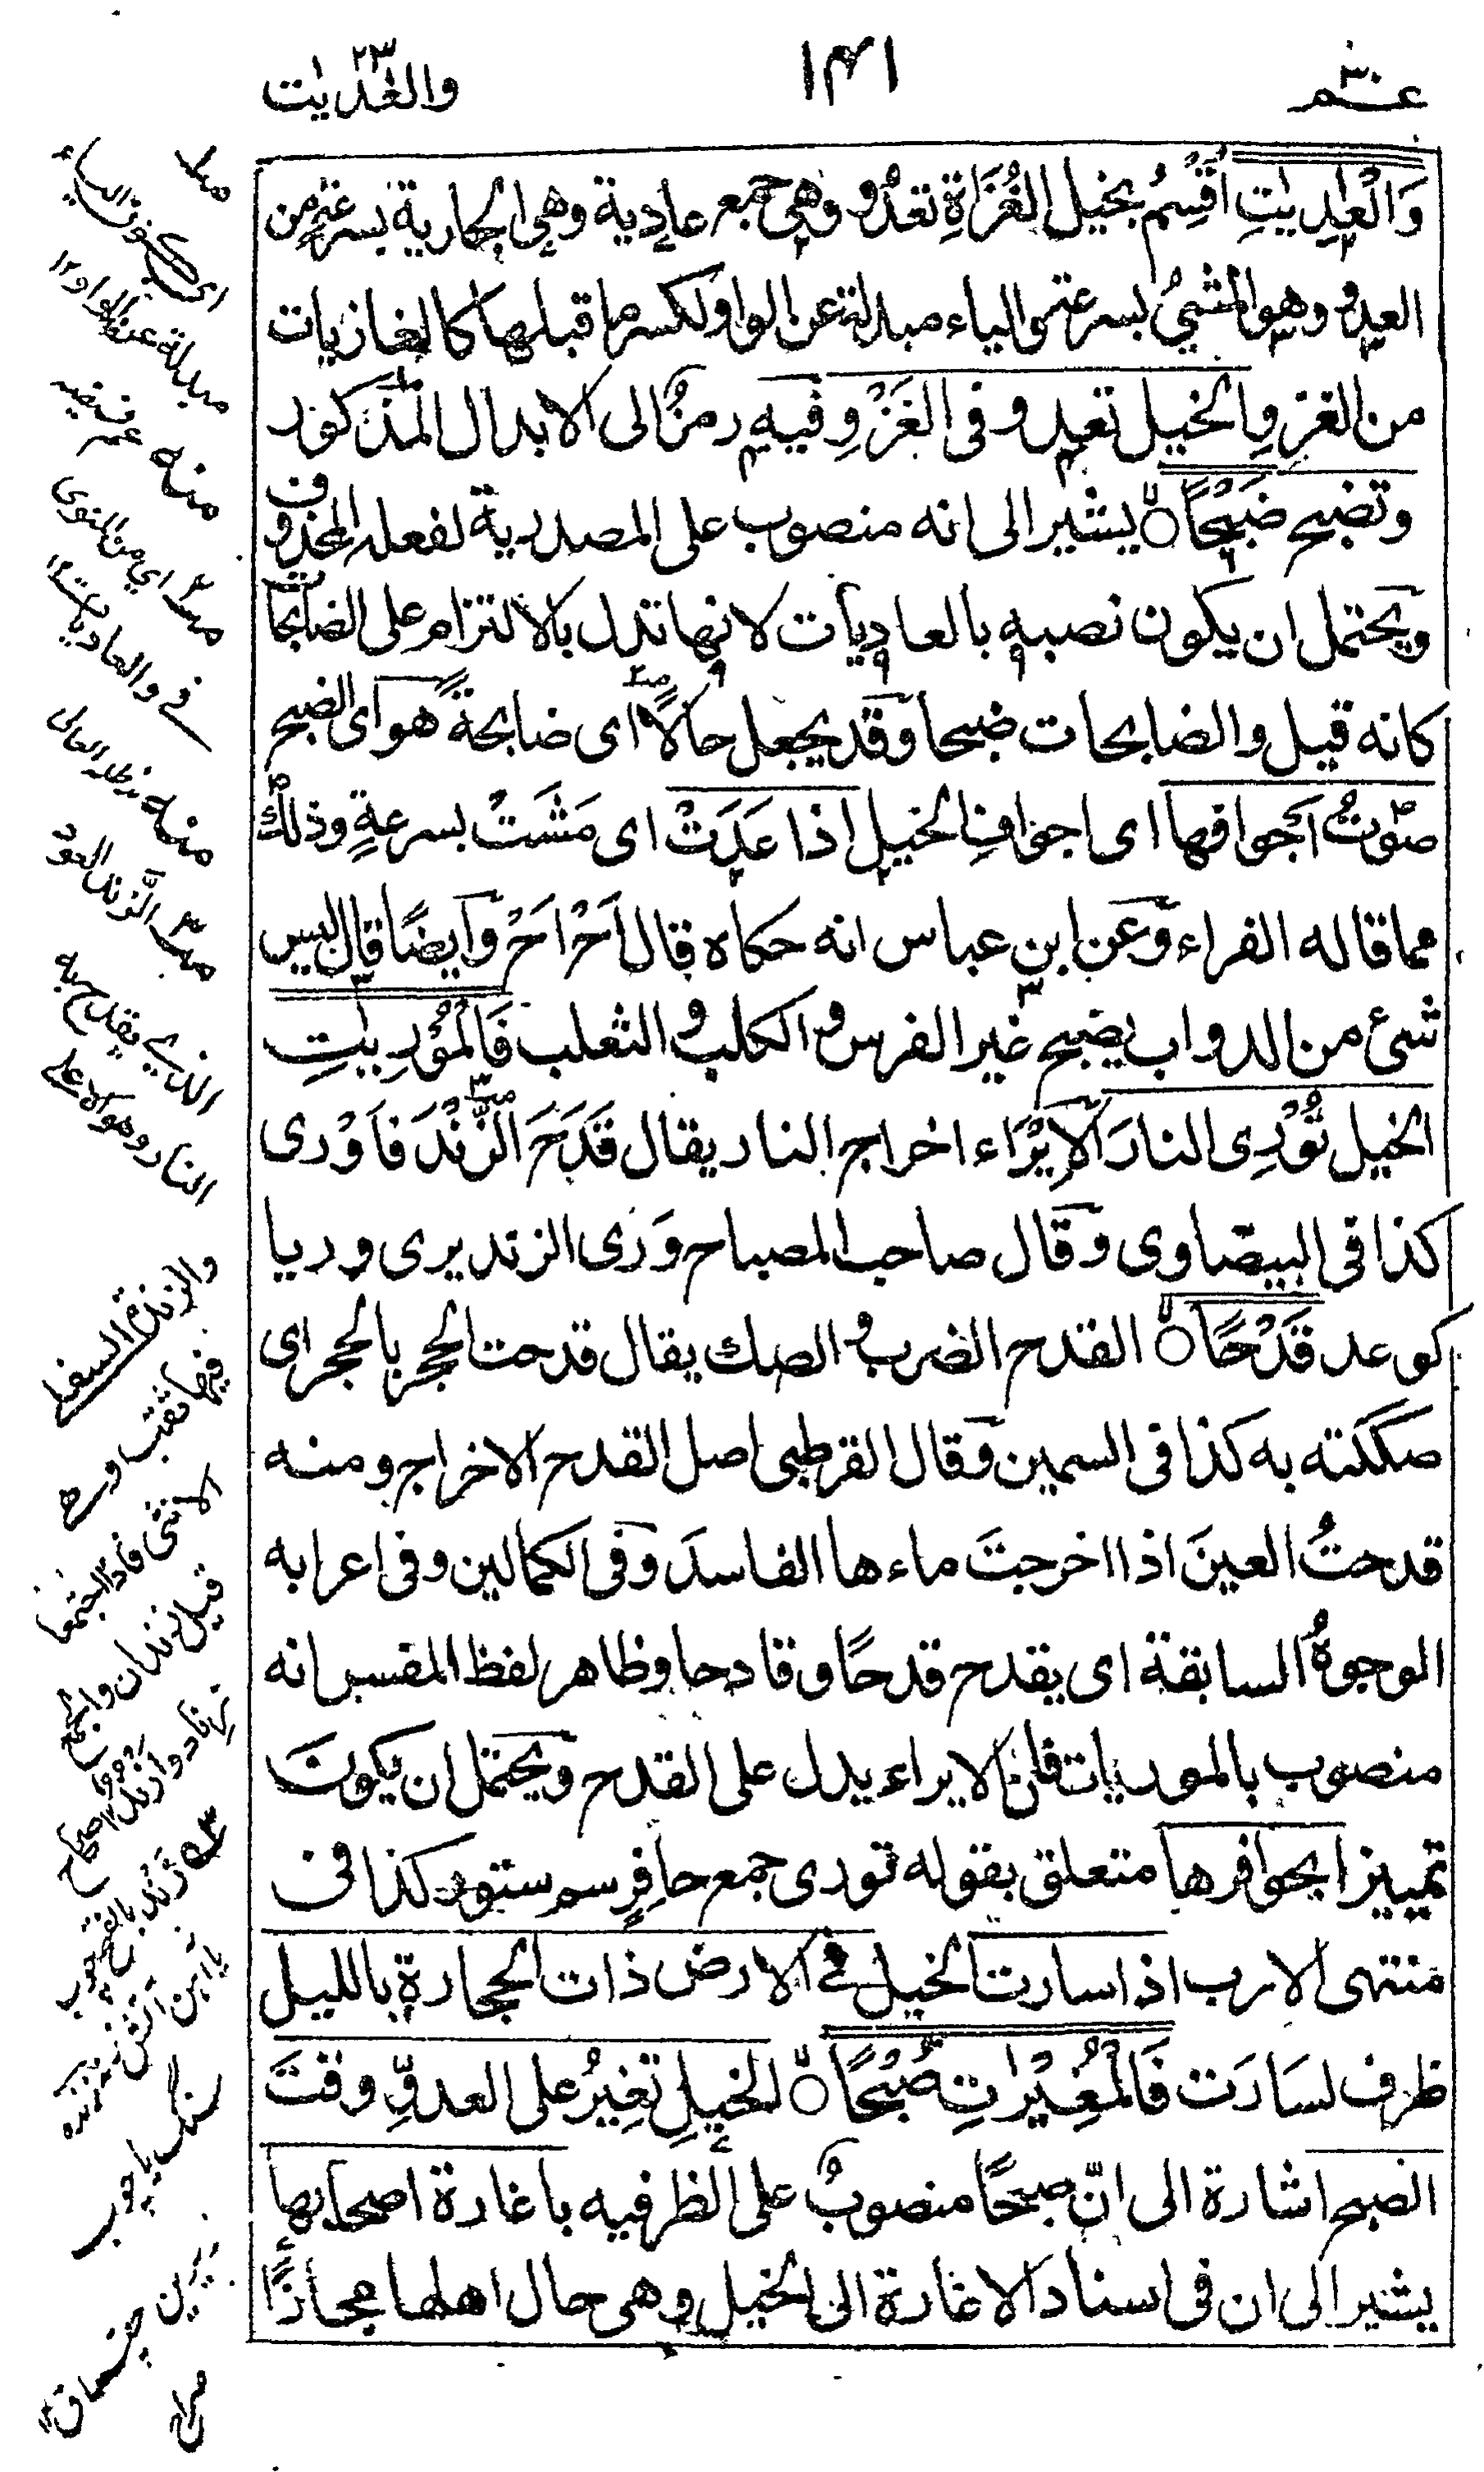 عم ٣٠
١٤١
والعٰديٰت ٢٣
وَالْعٰدِيٰتِ اُقْسِمُ بخيل الغُزَاةِ تعْدُو وهى جمع عادية وهى الجارية بسرعة من
العدو وهو المشىُ بسرعة والياء مبدلة عن الواو لكسر ما قبلها كالغازيات
من الغزوِ الخيل تعدو فى الغَزْوِ وفيه رمزٌ الى الابدال المذكور
وتضبح ضَبْحًا ۝ يشير الى انه منصوب على المصدرية لفعله المحذوف
ويحتمل ان يكون نصبه بالعاديات لانها تدل بالالتزام على الضابحات
كانه قيل والضابحات ضبحا وقد يجعل حالًا اى ضابحةً هو اى الضبح
صَوْتُ اَجوافها اى اجوافِ الخيل اذا عَدَتْ اى مَشَتْ بسرعةٍ وذلك
مما قاله الفراء وعن ابن عباس انه حكاه قال اَحْ اَحْ وايضًا قال ليس
شىء من الدواب يضبح غير الفرس والكلب والثعلب فَالْمُوْرِيٰتِ
الخيل تُوْرِى النارَ الاِيْرَاء اخراج النار يقال قَدَحَ الزَّنْدَ فَاَوْرى
كذا فى البيضاوى وقال صاحب المصباح وَرَى الزند يرى وريا
كوعد قَدْحًا ۝ القدح الضرب والصك يقال قدحت الحجر بالحجر اى
صككته به كذا فى السمين وقال القرطبى اصل القدح الاخراج ومنه
قدحتُ العينَ اذا اخرجتَ ماءها الفاسدَ وفى الكمالين وفى اعرابه
الوجوهُ السابقة اى يقدح قدحًا وقادحا وظاهر لفظ المفسر انه
منصوب بالموريات فان الايراء يدل على القدح ويحتمل ان يكونَ
تمييزا بحوافرها متعلق بقوله تورى جمع حافرٍ سم ستور كذا فى
منتهى الارب اذا سارت الخيل فى الارض ذات الحجارة بالليل
ظرف لسارَت فَالْمُغِيْرٰتِ صُبْحًا ۝ الخيلِ تغِيرُ على العدوِّ وقتَ
الصبح اشارة الى انّ صبحًا منصوبٌ على الظرفيه باغارة اصحابها
يشير الى ان فى اسناد الاغارة الى الخيل وهى حال اهلها مجازًا
اى بكون الياء
مبدلة عن الواو ١٢
منه
اى من المنوى
فى والعاديات ١٢
منه مد ظله العالى
الزند العود
الذى يقدح به
النار وهو الاعلى
والزندة السفلى
فيها ثقب وهى
الانثى فاذا اجتمعا
قيل زندان والجمع
زناد وازند
زند بالفتح چوب